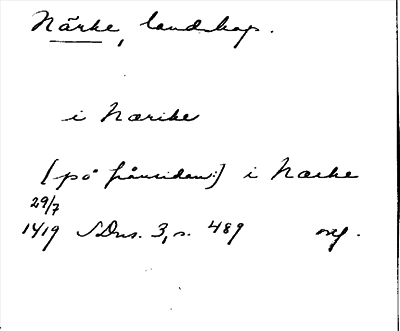 Närke, landskap.
i Nærike
[på frånsidan:] i Nærke
29/7
1419 SDns. 3, s. 489 or.